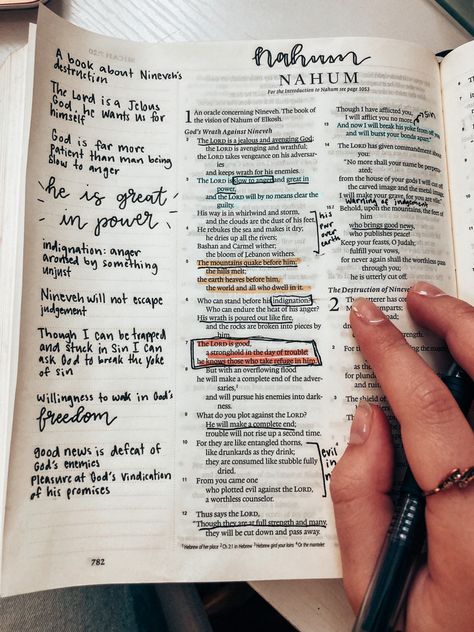 MICAH 7:20
nahum
NAHUM
For the Introduction to Nahum see page 1053
A book about Nineveh's
destruction
The Lord is a Jelous
God, he wants us for
himself
God is far more
patient than man being
slow to anger
he is great
in power
indignation: anger
aroused by something
unjust
Nineveh will not escape
judgement
Though I can be trapped
and stuck in sin I can
ask God to break the yoke
of sin
willingness to walk in God's
freedom
good news is defeat of
God's enemies
pleasure at God's vindication
of his promises
782
1 An oracle concerning Nineveh. The book of
the vision of Nahum of Elkosh.
God's Wrath Against Nineveh
2 The LORD is a jealous and avenging God;
the LORD is avenging and wrathful;
the LORD takes vengeance on his adversar-
ies
and keeps wrath for his enemies.
3 The LORD is slow to anger and great in
power,
and the LORD will by no means clear the
guilty.
His way is in whirlwind and storm,
and the clouds are the dust of his feet.
4 He rebukes the sea and makes it dry;
he dries up all the rivers;
Bashan and Carmel wither;
the bloom of Lebanon withers.
5 The mountains quake before him;
the hills melt;
the earth heaves before him,
the world and all who dwell in it.
his
pwr
over
earth
6 Who can stand before his indignation?
Who can endure the heat of his anger?
His wrath is poured out like fire,
and the rocks are broken into pieces by
him.
7 The LORD is good,
a stronghold in the day of trouble;
he knows those who take refuge in him.
8 But with an overflowing flood
he will make a complete end of the adver-
saries,
and will pursue his enemies into dark-
ness.
9 What do you plot against the LORD?
He will make a complete end;
trouble will not rise up a second time.
10 For they are like entangled thorns,
like drunkards as they drink;
they are consumed like stubble fully
dried.
11 From you came one
who plotted evil against the LORD,
a worthless counselor.
evil
in
12 Thus says the LORD,
"Though they are at full strength and many,
they will be cut down and pass away.
Though I have afflicted you,
I will afflict you no more.
sin
13 And now I will break his yoke from off you
and will burst your bonds apart."
14 The LORD has given commandment about
you:
"No more shall your name be perpetu-
ated;
from the house of your gods I will cut off
the carved image and the metal image.
I will make your grave, for you are vile."
warning of judgement
15 Behold, upon the mountains, the feet of
him
who brings good news,
who publishes peace!
Keep your feasts, O Judah;
fulfill your vows,
for never again shall the worthless pass
through you;
he is utterly cut off.
The Destruction of Nineveh
2 The scatterer has come